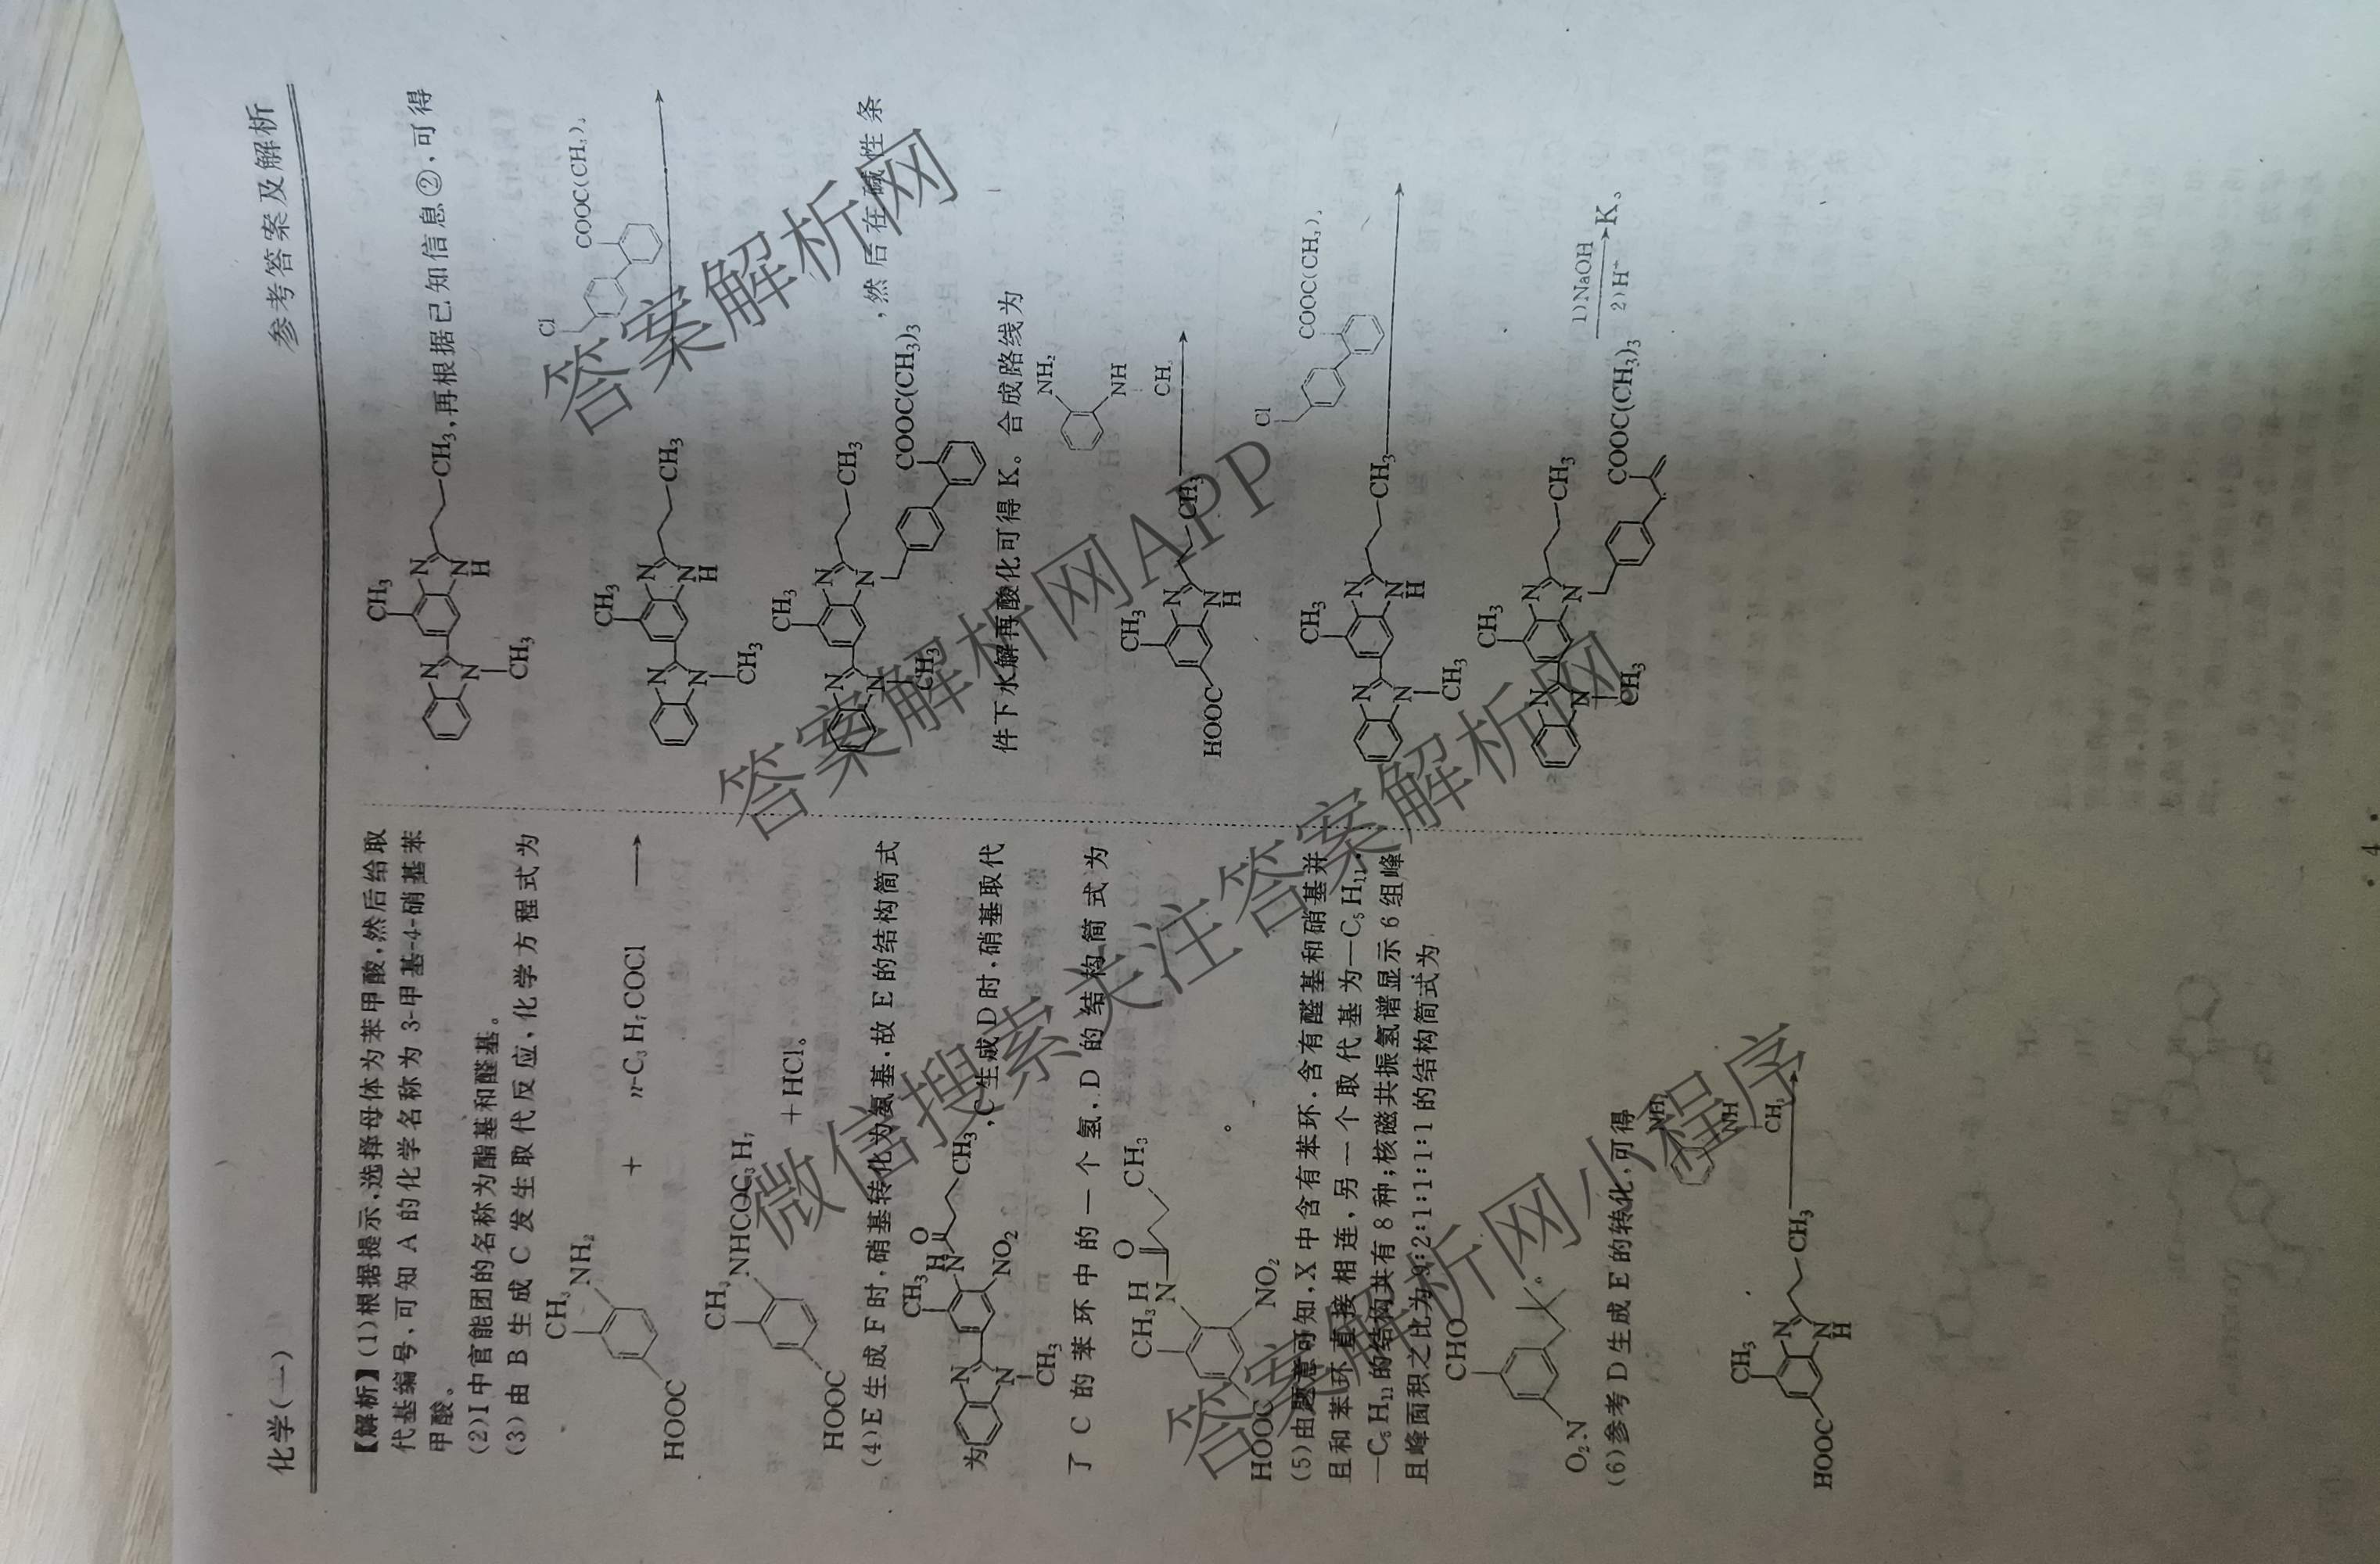 化学(一)
参考答案及解析
【解析】(1)根据提示,选择母体为苯甲酸,然后给取
代基编号,可知 A 的化学名称为 3-甲基-4-硝基苯
甲酸。
(2)I 中官能团的名称为酯基和醛基。
(3)由 B 生成 C 发生取代反应,化学方程式为
CH₃
NH₂
HOOC
+ n-C₃H₇COCl ⟶
CH₃
NHCOC₃H₇
HOOC
+HCl。
(4)E 生成 F 时,硝基转化为氨基,故 E 的结构简式
CH₃
H
N
O
为
N
N
CH₃
NO₂
CH₃
,C 生成 D 时,硝基取代
了 C 的苯环中的一个氢,D 的结构简式为
CH₃
H
N
O
CH₃
HOOC
NO₂
。
(5)由题意可知,X 中含有苯环,含有醛基和硝基并
且和苯环直接相连,另一个取代基为—C₅H₁₁,
—C₅H₁₁的结构共有 8 种;核磁共振氢谱显示 6 组峰
且峰面积之比为 9:2:1:1:1:1 的结构简式为
CHO
O₂N
。
(6)参考 D 生成 E 的转化,可得
CH₃
N
N
H
CH₃
HOOC
NH₂
NH
CH₃
CH₃
N
N
CH₃
N
N
H
CH₃,再根据已知信息②,可得
CH₃
N
N
CH₃
N
N
H
CH₃
Cl
COOC(CH₃)₃
CH₃
N
N
CH₃
N
N
CH₃
COOC(CH₃)₃
,然后在碱性条
件下水解再酸化可得 K。合成路线为
CH₃
N
N
H
CH₃
HOOC
NH₂
NH
CH₃
CH₃
N
N
CH₃
N
N
H
CH₃
Cl
COOC(CH₃)₃
CH₃
N
N
CH₃
N
N
CH₃
COOC(CH₃)₃
1)NaOH
2)H⁺
K。
· 4 ·
答案解析网
答案解析网APP
微信搜索关注答案解析网
答案解析网小程序